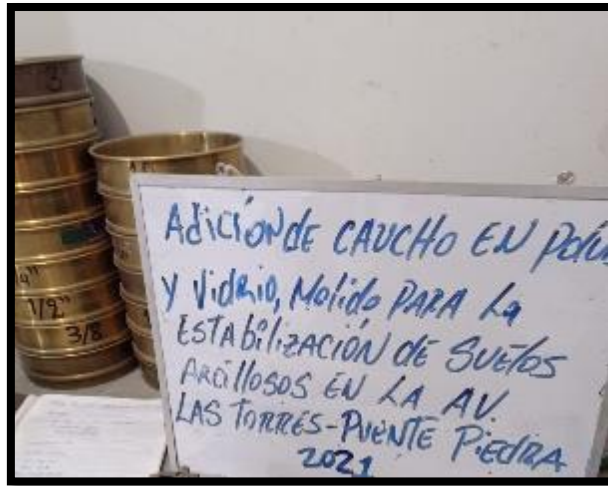 3"
1/4"
1/2"
3/8
Adición de CAUCHO EN
y Vidrio, Molido PARA La
ESTAbilizACIÓN dE SUElos
ARCillosos EN LA AV.
LAS TORRES-PUENTE PIEDRA
2021